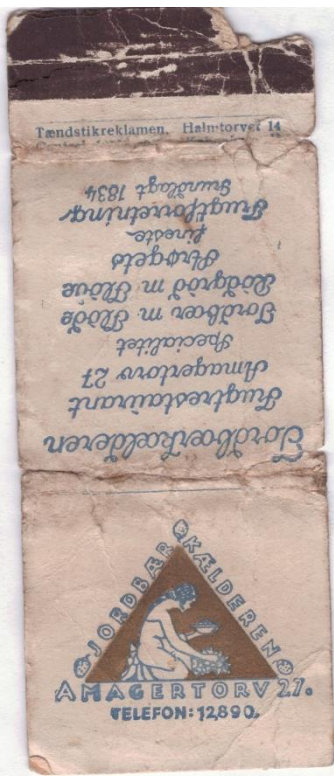 Tændstikreklamen, Halmtorvet 14
Jordbærkælderen
Frugtrestaurant
Amagertorv 27
Specialitet
Jordbær m. Fløde
Rødgrød m. Fløde
Strøgets
fineste
Frugtforretning
Grundlagt 1834
JORDBÆR KÆLDEREN
AMAGERTORV 27.
TELEFON: 12,890.